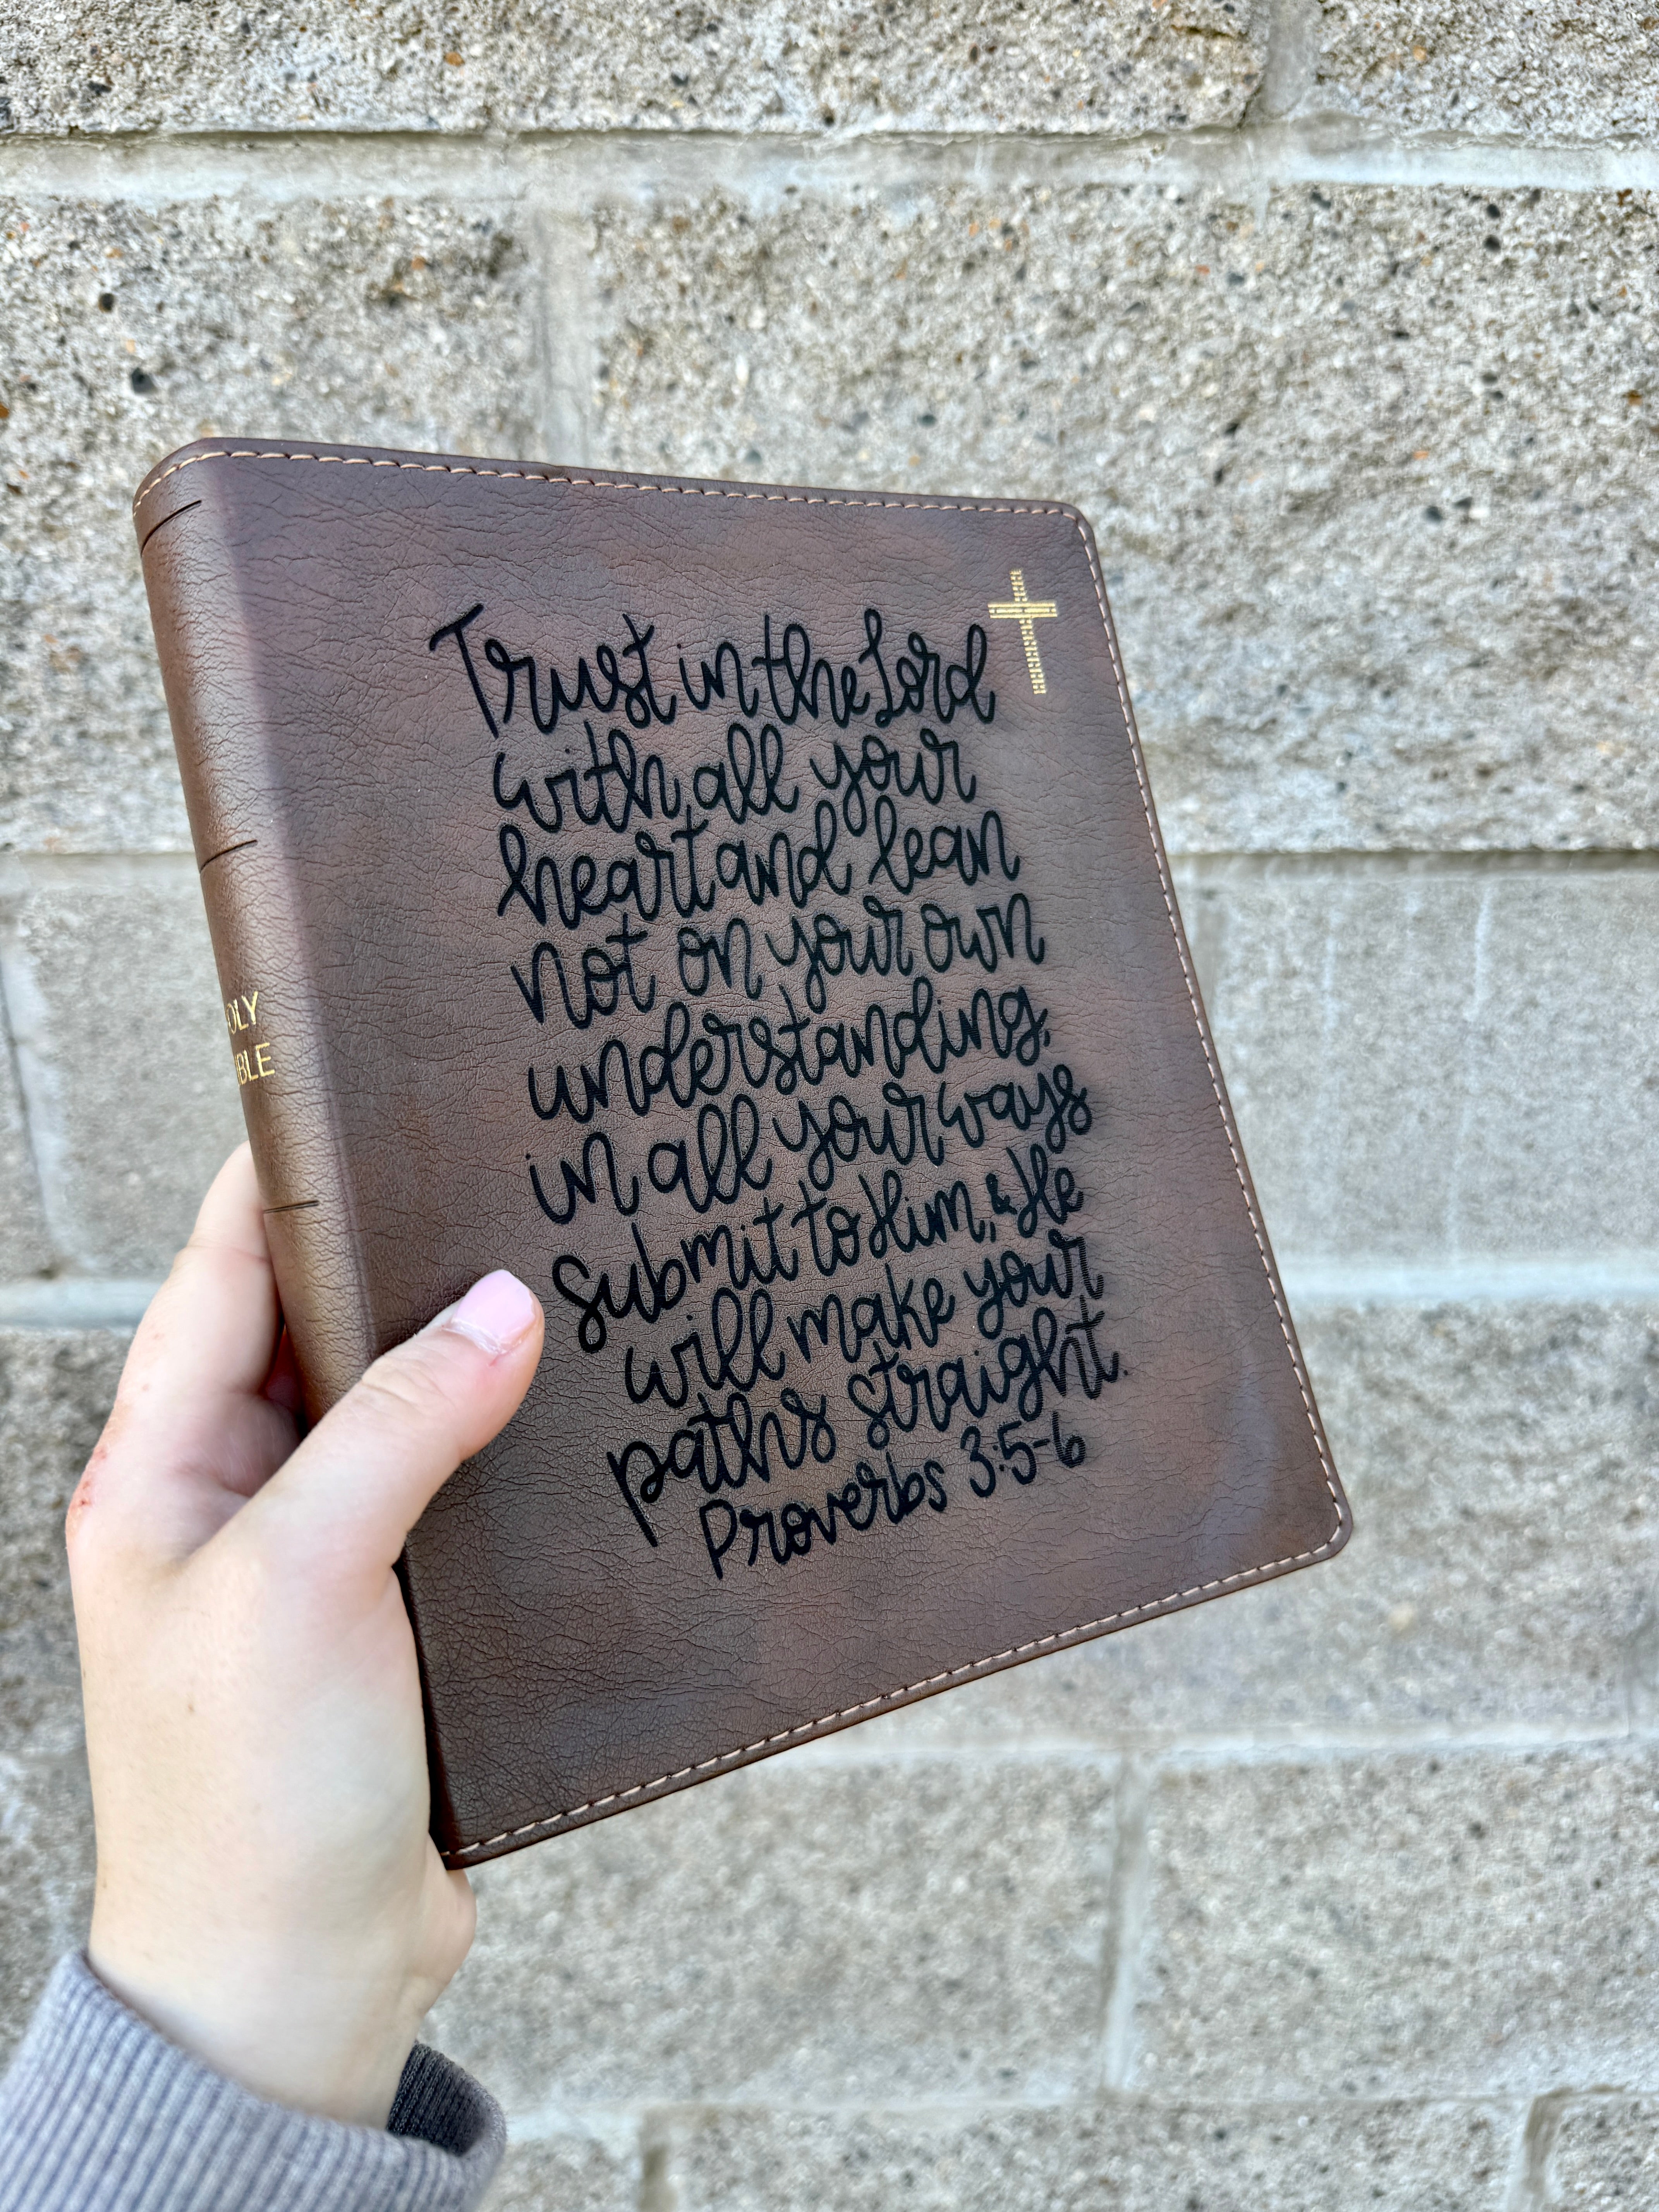 Trust in the Lord
with all your
heart and lean
not on your own
understanding,
in all your ways
submit to Him, & He
will make your
paths straight.
Proverbs 3:5-6
OLY
IBLE